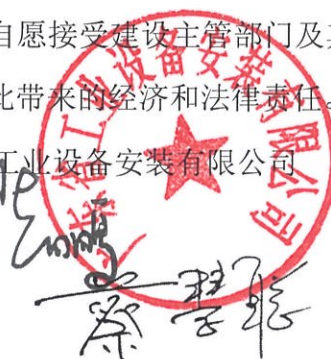 自愿接受建设主管部门及
此带来的经济和法律责任。
工业设备安装有限公司
省工业设备安装有限公司
蔡慧聪